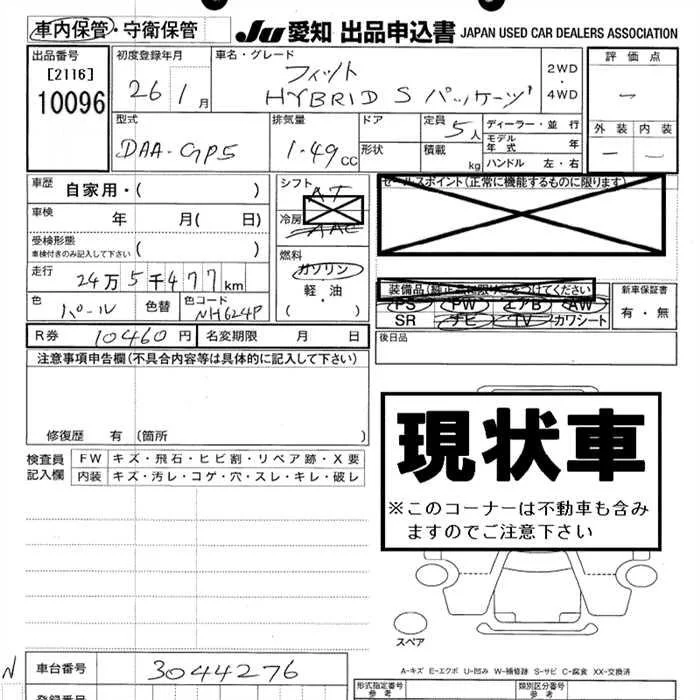 車内保管・守衛保管
JU 愛知 出品申込書 JAPAN USED CAR DEALERS ASSOCIATION
出品番号
[2116]
10096
初度登録年月
26 1月
車名・グレード
フィット
HYBRID S パッケージ
2WD
・
4WD
評価点
―
外装 内装
― ―
型式
DAA-GP5
排気量
1.49 CC
ドア
形状
定員 5人
積載 kg
ディーラー・並行
モデル年式 年
ハンドル 左・右
車歴 自家用・( )
シフト AT
セールスポイント(正常に機能するものに限ります)
車検 年 月( 日)
冷房 AAC
受検形態
車検付きのみ記入して下さい ( )
燃料
ガソリン
軽・油
( )
走行 24万5千477km
色 パール 色替 色コード NH624P
装備品(純正品に限り○をつけてください
PS PW エアB AW
SR ナビ TV カワシート
新車保証書
有・無
R券 10460円 名変期限 月 日
後日品
注意事項申告欄(不具合内容等は具体的に記入して下さい)
修復歴 有 (箇所 )
現状車
※このコーナーは不動車も含み
ますのでご注意下さい
検査員
記入欄
FW キズ・飛石・ヒビ割・リペア跡・X要
内装 キズ・汚レ・コゲ・穴・スレ・キレ・破レ
スペア
A-キズ E-エクボ U-凹み W-補修跡 S-サビ C-腐食 XX-交換済
N 車台番号 3044276
登録番号
形式指定番号
参考
類別区分番号
参考